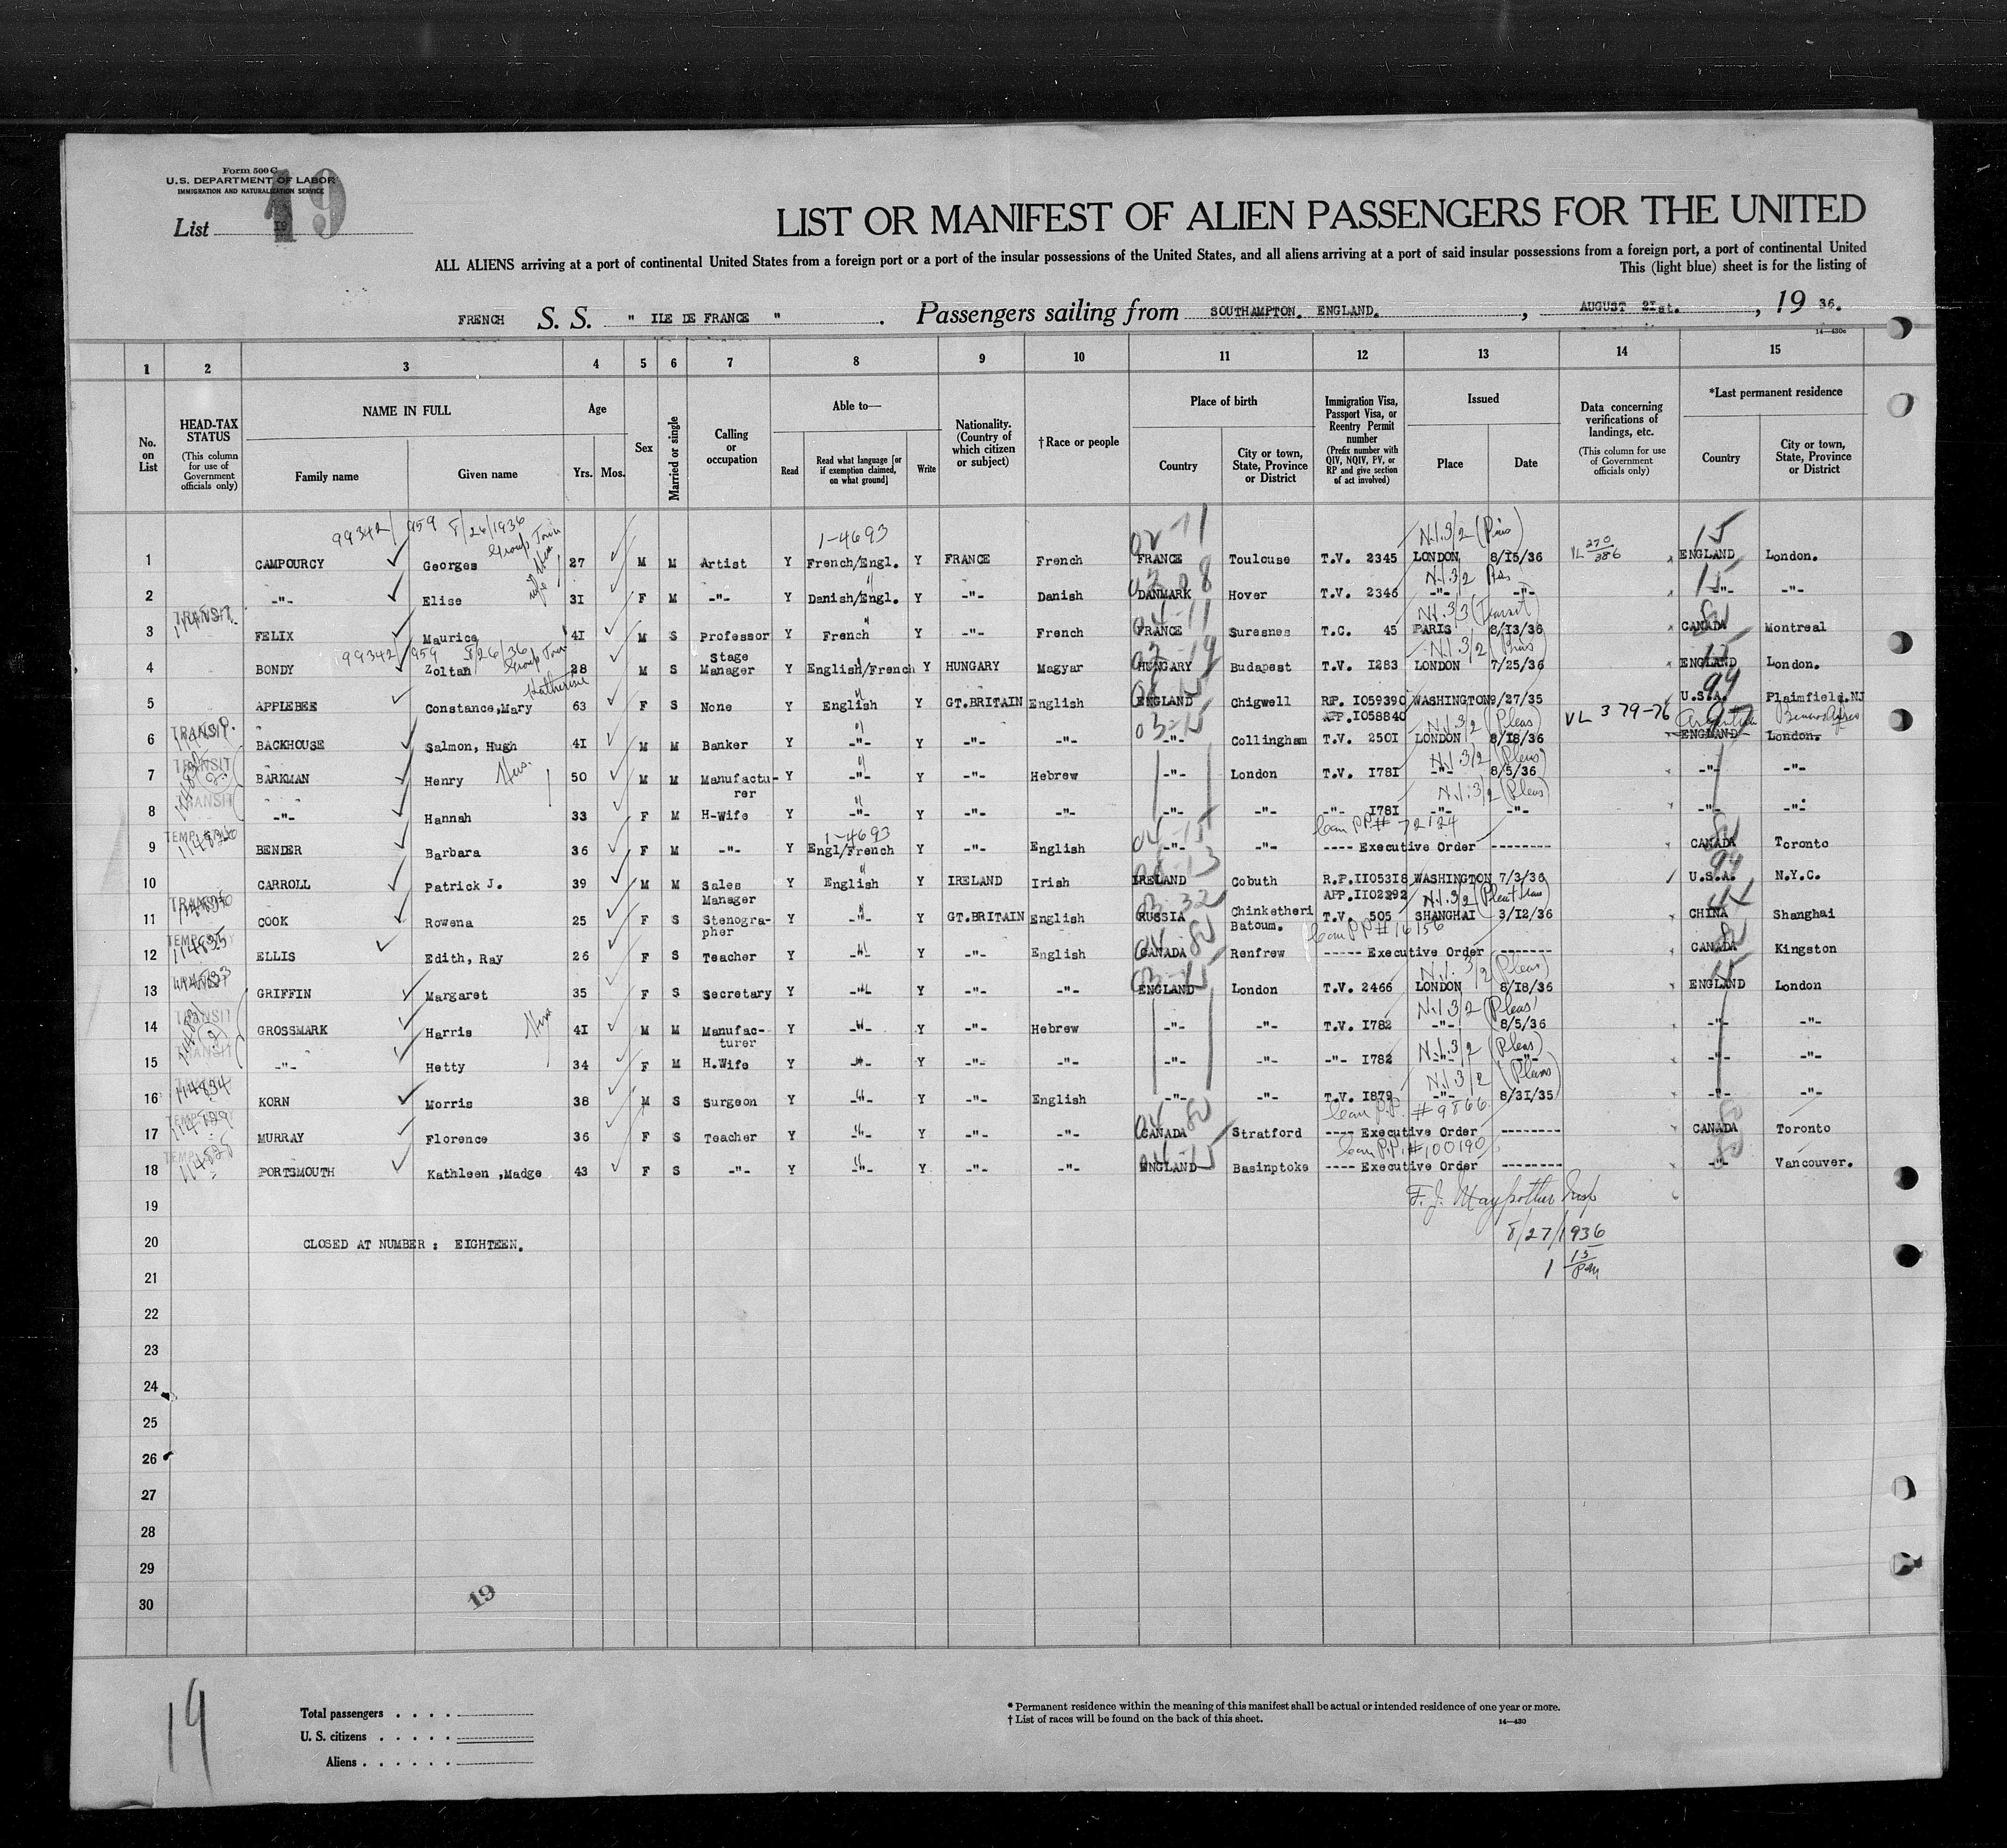 Form 500 C
U.S. DEPARTMENT OF LABOR
IMMIGRATION AND NATURALIZATION SERVICE
List 19
19
LIST OR MANIFEST OF ALIEN PASSENGERS FOR THE UNITED
ALL ALIENS arriving at a port of continental United States from a foreign port or a port of the insular possessions of the United States, and all aliens arriving at a port of said insular possessions from a foreign port, a port of continental United
This (light blue) sheet is for the listing of
FRENCH S. S. " ILE DE FRANCE " . Passengers sailing from SOUTHAMPTON. ENGLAND. , AUGUST 2Ist. , 19 36.
14—430c
1 2 3 4 5 6 7 8 9 10 11 12 13 14 15
No. on List
HEAD-TAX STATUS (This column for use of Government officials only)
NAME IN FULL
Family name Given name
Age
Yrs. Mos.
Sex
Married or single
Calling or occupation
Able to—
Read Read what language [or if exemption claimed, on what ground] Write
Nationality. (Country of which citizen or subject)
†Race or people
Place of birth
Country City or town, State, Province or District
Immigration Visa, Passport Visa, or Reentry Permit number (Prefix number with QIV, NQIV, PV, or RP and give section of act involved)
Issued
Place Date
Data concerning verifications of landings, etc. (This column for use of Government officials only)
*Last permanent residence
Country City or town, State, Province or District
99342/959 8/26/1936 1-4693 02-11 N.I.3/2 15
1 CAMPOURCY Georges 27 M M Artist Y French/Engl. Y FRANCE French FRANCE Toulouse T.V. 2345 LONDON 8/I5/36 VL 270/386 ENGLAND London.
wife N.I.3/2 15
2 -"- Elise 3I F M -"- Y Danish/Engl. Y -"- Danish DANMARK Hover T.V. 2346 -"- -"- -"- -"-
TRANSIT N.I.3/3 (Transit)
3 FELIX Maurice 4I M S Professor Y French Y -"- French FRANCE Suresnes T.C. 45 PARIS 8/I3/36 CANADA Montreal
99342/959 8/26/36 N.I.3/2
4 BONDY Zoltan 28 M S Stage Manager Y English/French Y HUNGARY Magyar HUNGARY Budapest T.V. I283 LONDON 7/25/36 ENGLAND London.
Katherine 99
5 APPLEBEE Constance,Mary 63 F S None Y English Y GT.BRITAIN English ENGLAND Chigwell RP. I059390 WASHINGTON 9/27/35 U.S.A. Plainfield.NJ
APP.I058840
TRANSIT 03-15 N.I.3/2 (Pleas) VL 379-76 Argentina Buenos Aires
6 BACKHOUSE Salmon, Hugh 4I M M Banker Y -"- Y -"- -"- -"- Collingham T.V. 250I LONDON 8/I8/36 ENGLAND London.
TRANSIT N.I.3/2 (Pleas)
7 BARKMAN Henry 50 M M Manufacturer Y -"- Y -"- Hebrew -"- London T.V. I78I -"- 8/5/36 -"- -"-
TRANSIT N.I.3/2 (Pleas)
8 -"- Hannah 33 F M H-Wife Y -"- Y -"- -"- -"- -"- -"- I78I -"- -"- -"- -"-
1-4693 Can PP# 72124
9 BENDER Barbara 36 F M -"- Y Engl/French Y -"- English -"- -"- ---- Executive Order -------- CANADA Toronto
99
10 CARROLL Patrick J. 39 M M Sales Manager Y English Y IRELAND Irish IRELAND Cobuth R.P.II053I8 WASHINGTON 7/3/36 U.S.A. N.Y.C.
APP.II02292
TRANSIT N.I.3/2
11 COOK Rowena 25 F S Stenographer Y -"- Y GT.BRITAIN English RUSSIA Chinketheri Batoum. T.V. 505 SHANGHAI 3/I2/36 CHINA Shanghai
114835 Can PP# 16156
12 ELLIS Edith, Ray 26 F S Teacher Y -"- Y -"- English CANADA Renfrew ----- Executive Order ------- CANADA Kingston
N.I.3/2 (Pleas)
13 GRIFFIN Margaret 35 F S Secretary Y -"- Y -"- -"- ENGLAND London T.V. 2466 LONDON 8/I8/36 ENGLAND London
TRANSIT N.I.3/2 (Pleas)
14 GROSSMARK Harris 4I M M Manufacturer Y -"- Y -"- Hebrew -"- -"- T.V. I782 -"- 8/5/36 -"- -"-
TRANSIT N.I.3/2 (Pleas)
15 -"- Hetty 34 F M H.Wife Y -"- Y -"- -"- -"- -"- -"- I782 -"- -"- -"- -"-
114834 N.I.3/2 (Pleas)
16 KORN Morris 38 M S Surgeon Y -"- Y -"- English -"- -"- T.V. I879 -"- 8/3I/35 -"- -"-
Can P.P. #9866
17 MURRAY Florence 36 F S Teacher Y -"- Y -"- -"- CANADA Stratford ---- Executive Order -------- CANADA Toronto
114828 Can P.P. #100190
18 PORTSMOUTH Kathleen ,Madge 43 F S -"- Y -"- Y -"- -"- ENGLAND Basinptoke ---- Executive Order -------- -"- Vancouver.
19
8/27/1936
20 CLOSED AT NUMBER : EIGHTEEN.
1 15/Pm
21
22
23
24
25
26
27
28
29
30
19
19
Total passengers . . . .
U. S. citizens . . . . .
Aliens . . . . . .
* Permanent residence within the meaning of this manifest shall be actual or intended residence of one year or more.
† List of races will be found on the back of this sheet.
14—430